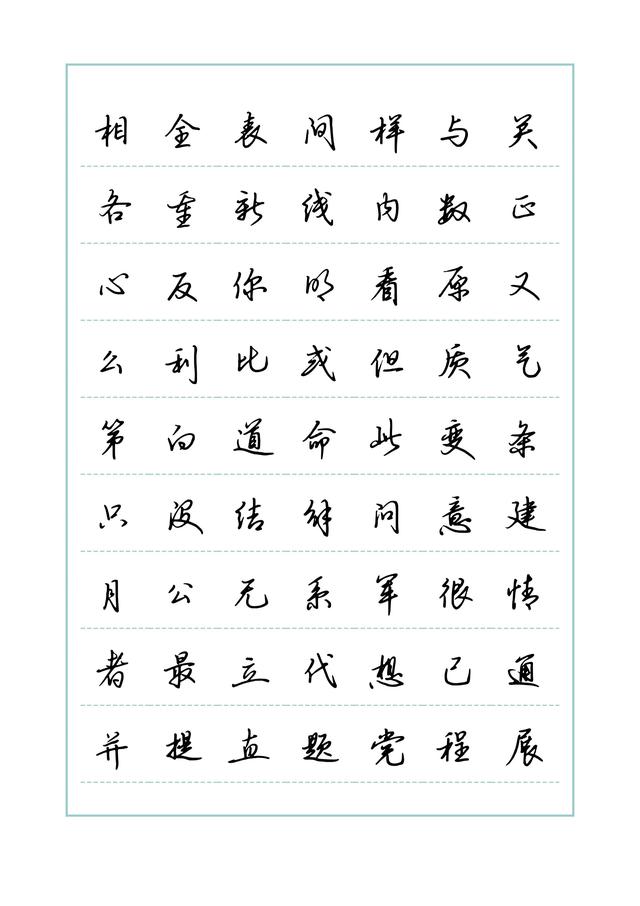 相全表间样与关
各重新线内数正
心反你明看原又
么利比或但质气
第向道命此变条
只没结解问意建
月公无系军很情
者最立代想已通
并提直题党程展